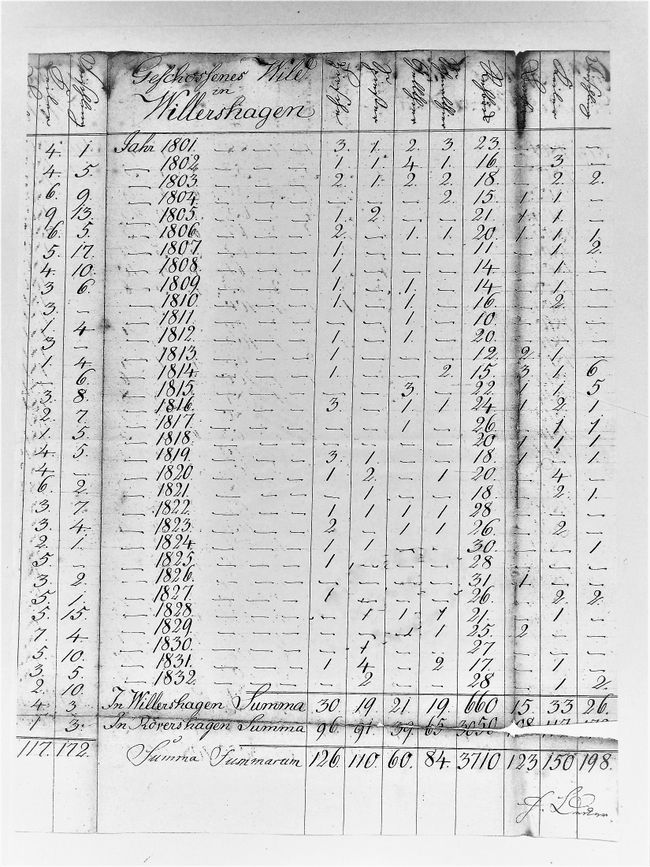 Geschossenes Wild
in
Willershagen
4. 1. Jahr 1801. — — — 3. 1. 2. 3. 23. — — —
4. 5. — 1802. — — — 1. 1. 4. 1. 16. — 3. —
6. 9. — 1803. — — — 2. 1. 2. 2. 18. — 2. 2.
9. 13. — 1804. — — — — — — 2. 15. 1. 1. —
6. 5. — 1805. — — — 1. 2. — — 21. 1. 1. —
5. 17. — 1806. — — — 2. — 1. 1. 20. 1. 1. 1.
4. 10. — 1807. — — — 1. — — — 11. — 1. 2.
3. 6. — 1808. — — — 1. — — — 14. — 1. —
3. — — 1809. — — — 1. — 1. — 14. — 1. —
1. 4. — 1810. — — — 1. — 1. — 16. — 2. —
3. — — 1811. — — — — — 1. — 10. — — —
1. 4. — 1812. — — — 1. — 1. — 20. — — —
— 6. — 1813. — — — 1. — — — 12. 2. 1. —
3. 8. — 1814. — — — 1. — — 2. 15. 3. 1. 6
2. 7. — 1815. — — — — — 3. — 22 1 1 5
1. 5. — 1816. — — — 3. — 1 1 24 1 2. 1
4. 5. — 1817. — — — — — 1 — 26 — 1 1
4. — — 1818. — — — — — — — 20 1 1 1
6. 2. — 1819. — — — 3. 1 — — 18 1 — 1
3. 7. — 1820. — — — 1 2. — 1 20. — 4. —
3. 4. — 1821. — — — — 1 — — 18. — 2. 1.
2. 1. — 1822. — — — 1 1 1 1 28 — — —
5. — — 1823. — — — 2. — 1 1 26. — 2. —
3. 2. — 1824. — — — 1 1 — — 30. — — 1
5. 1. — 1825. — — — 1 — — — 28 — — —
5. 15. — 1826. — — — — — — — 31. 1 — —
7. 4. — 1827. — — — 1 — — — 26 — 2. 2.
5. 10. — 1828. — — — — 1 1 1 21 — 1 —
3. 5. — 1829. — — — — — — 1 25. 2 — —
2. 10. — 1830. — — — — 1 — — 27 — — —
4. 3. — 1831. — — — 1 4. — 2 17 — 1 —
1. 3. — 1832. — — — — 2 — — 28 — 1 2.
In Willershagen Summa 30. 19. 21. 19. 660 15. 33 26.
In Rövershagen Summa 96. 91. 39. 65. 3050
117. 172. Summa Summarum 126. 110. 60. 84. 3710 123 150 198.